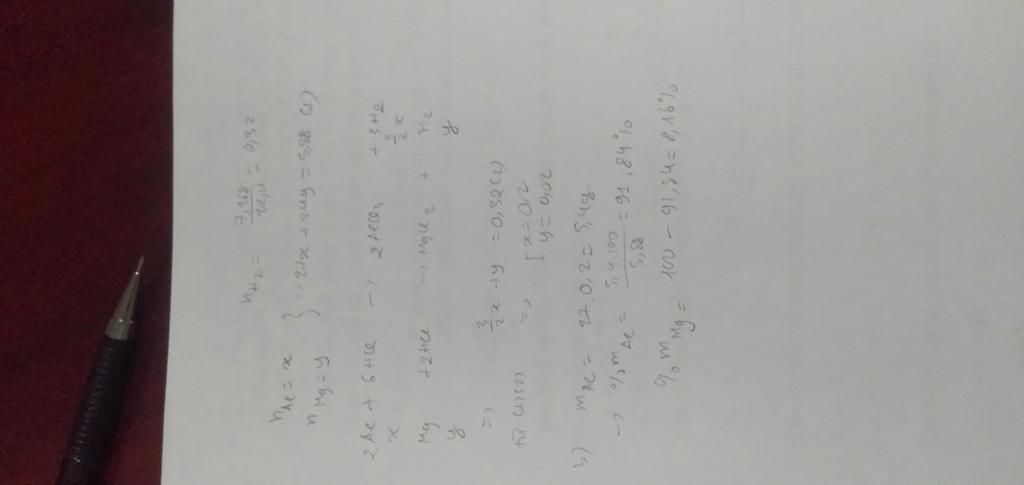 nH2 = 7,168/22,4 = 0,32
nAl = x
nMg = y } → 27x + 24y = 5,88 (1)
2Al + 6HCl → 2AlCl3 + 3H2
x 3/2x
Mg + 2HCl → MgCl2 + H2
y y
=> 3/2x + y = 0,32 (2)
từ (1)(2) => [ x = 0,2
y = 0,02
b) mAl = 27.0,2 = 5,4g
→ %mAl = 5,4.100/5,88 = 91,84%
%mMg = 100 - 91,84 = 8,16%